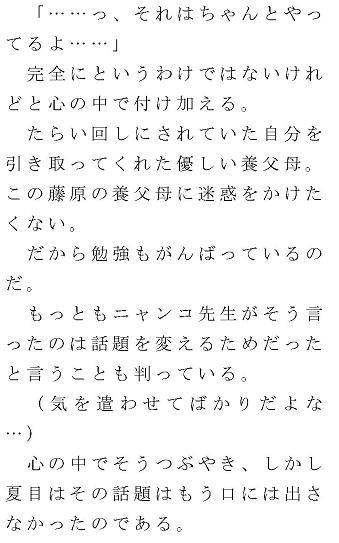 「……っ、それはちゃんとやっ
てるよ……」
　完全にというわけではないけれ
どと心の中で付け加える。
　たらい回しにされていた自分を
引き取ってくれた優しい養父母。
この藤原の養父母に迷惑をかけた
くない。
　だから勉強もがんばっているの
だ。
　もっともニャンコ先生がそう言
ったのは話題を変えるためだった
と言うことも判っている。
　（気を遣わせてばかりだよな
…）
　心の中でそうつぶやき、しかし
夏目はその話題はもう口には出さ
なかったのである。